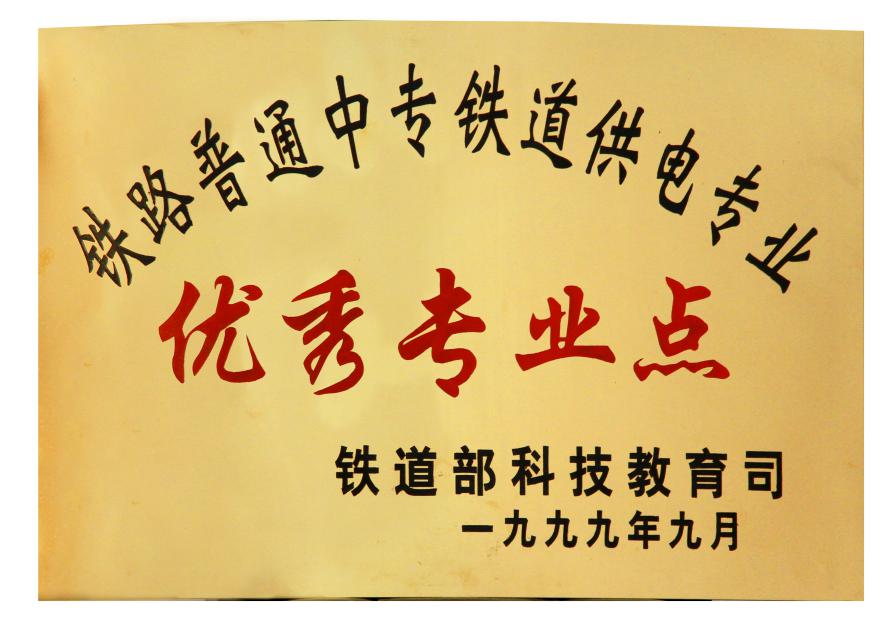 铁路普通中专铁道供电专业
优秀专业点
铁道部科技教育司
一九九九年九月